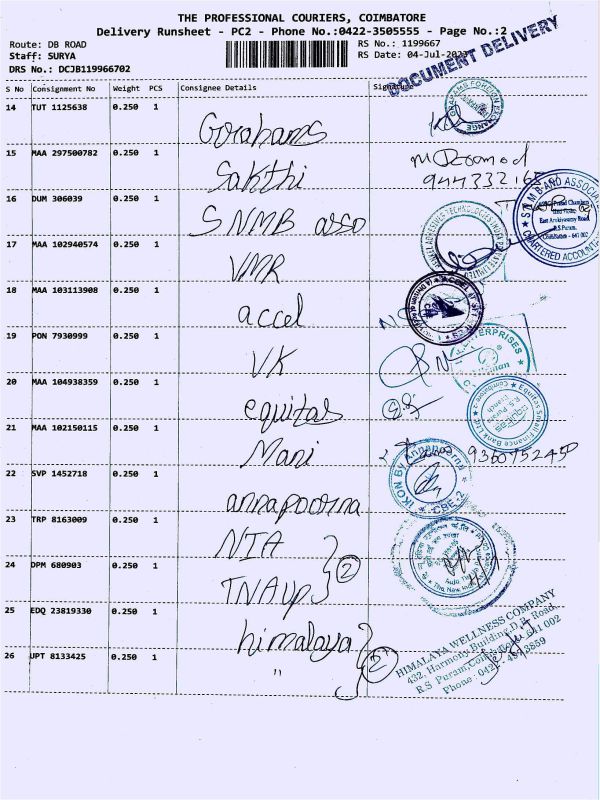 THE PROFESSIONAL COURIERS, COIMBATORE
Delivery Runsheet - PC2 - Phone No.:0422-3505555 - Page No.:2
Route: DB ROAD
RS No.: 1199667
Staff: SURYA
RS Date: 04-Jul-2023
DRS No.: DCJB119966702
DOCUMENT DELIVERY
S No Consignment No Weight PCS Consignee Details Signature
14 TUT 1125638 0.250 1 Grahams
GRAHAMS FOREIGN EXCHANGE
15 MAA 297500782 0.250 1 Sakthi
16 DUM 306039 0.250 1 SNMB asso
SNMB AND ASSOCIATES
East Arokiyasamy Road
R.S Puram,
Coimbatore - 641 002
CHARTERED ACCOUNTANTS
17 MAA 102940574 0.250 1 VMR
18 MAA 103113908 0.250 1 accel
19 PON 7930999 0.250 1 VK
ENTERPRISES
20 MAA 104938359 0.250 1 equitas
Equitas Small Finance Bank Ltd
R.S Puram
Branch
Coimbatore
21 MAA 102150115 0.250 1 Mani
9360752450
22 SVP 1452718 0.250 1 annapoorna
IKON By Annapoorna
CBE-2
23 TRP 8163009 0.250 1 NIA
24 DPM 680903 0.250 1 TNAUP
2
The New India
25 EDQ 23819330 0.250 1 himalaya
26 UPT 8133425 0.250 1 "
2
HIMALAYA WELLNESS COMPANY
432, Harmony Building, D.B. Road,
R.S Puram, Coimbatore - 641 002
Phone : 0422 -